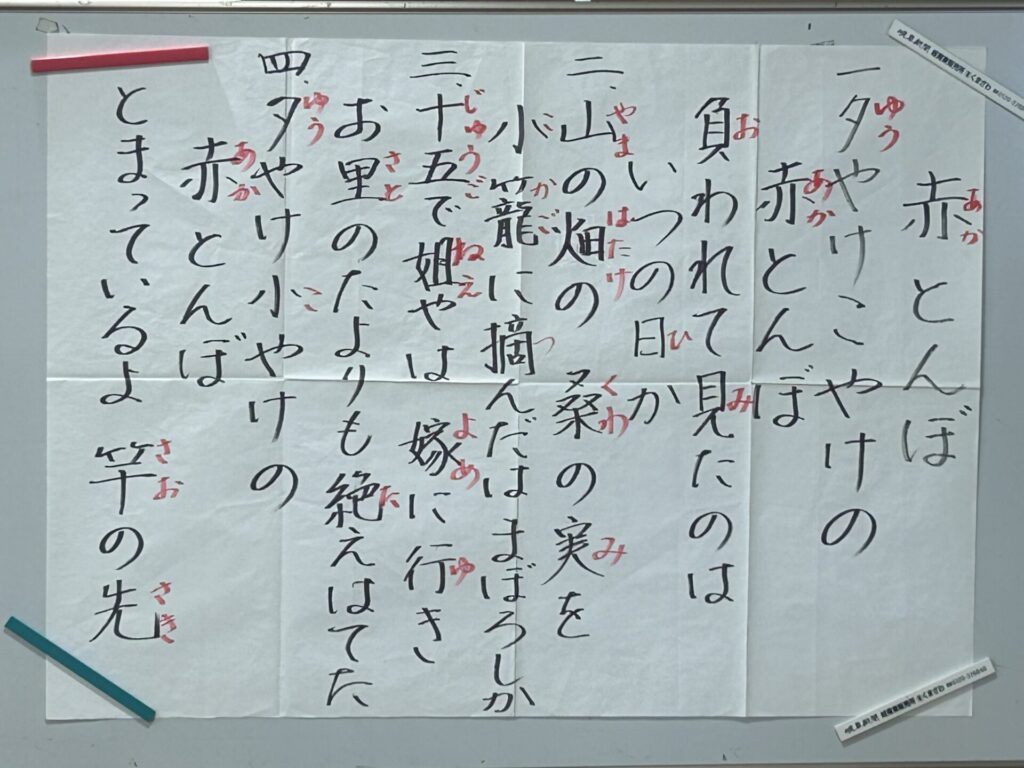 赤とんぼ
一夕やけこやけの
赤とんぼ
負われて見たのは
いつの日か
二、山の畑の 桑の実を
小籠に摘んだは まぼろしか
三、十五で姐やは 嫁に行き
お里のたよりも 絶えはてた
四、夕やけ小やけの
赤とんぼ
とまっているよ 竿の先
あか
ゆう
あか
お
み
ひ
やま
はたけ
くわ
み
こ
かご
つ
じゅうご
ねえ
よめ
ゆ
さと
た
ゆう
こ
あか
さお
さき
岐阜新聞
岐阜新聞